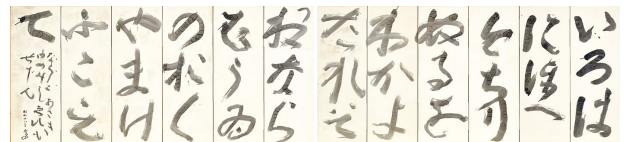 いろは
にほへ
とちり
ぬるを
わかよ
たれそ
ねなら
むうゐ
のおく
やまけ
ふこえ
て
あさき
ゆめみしゑひ
もせすん